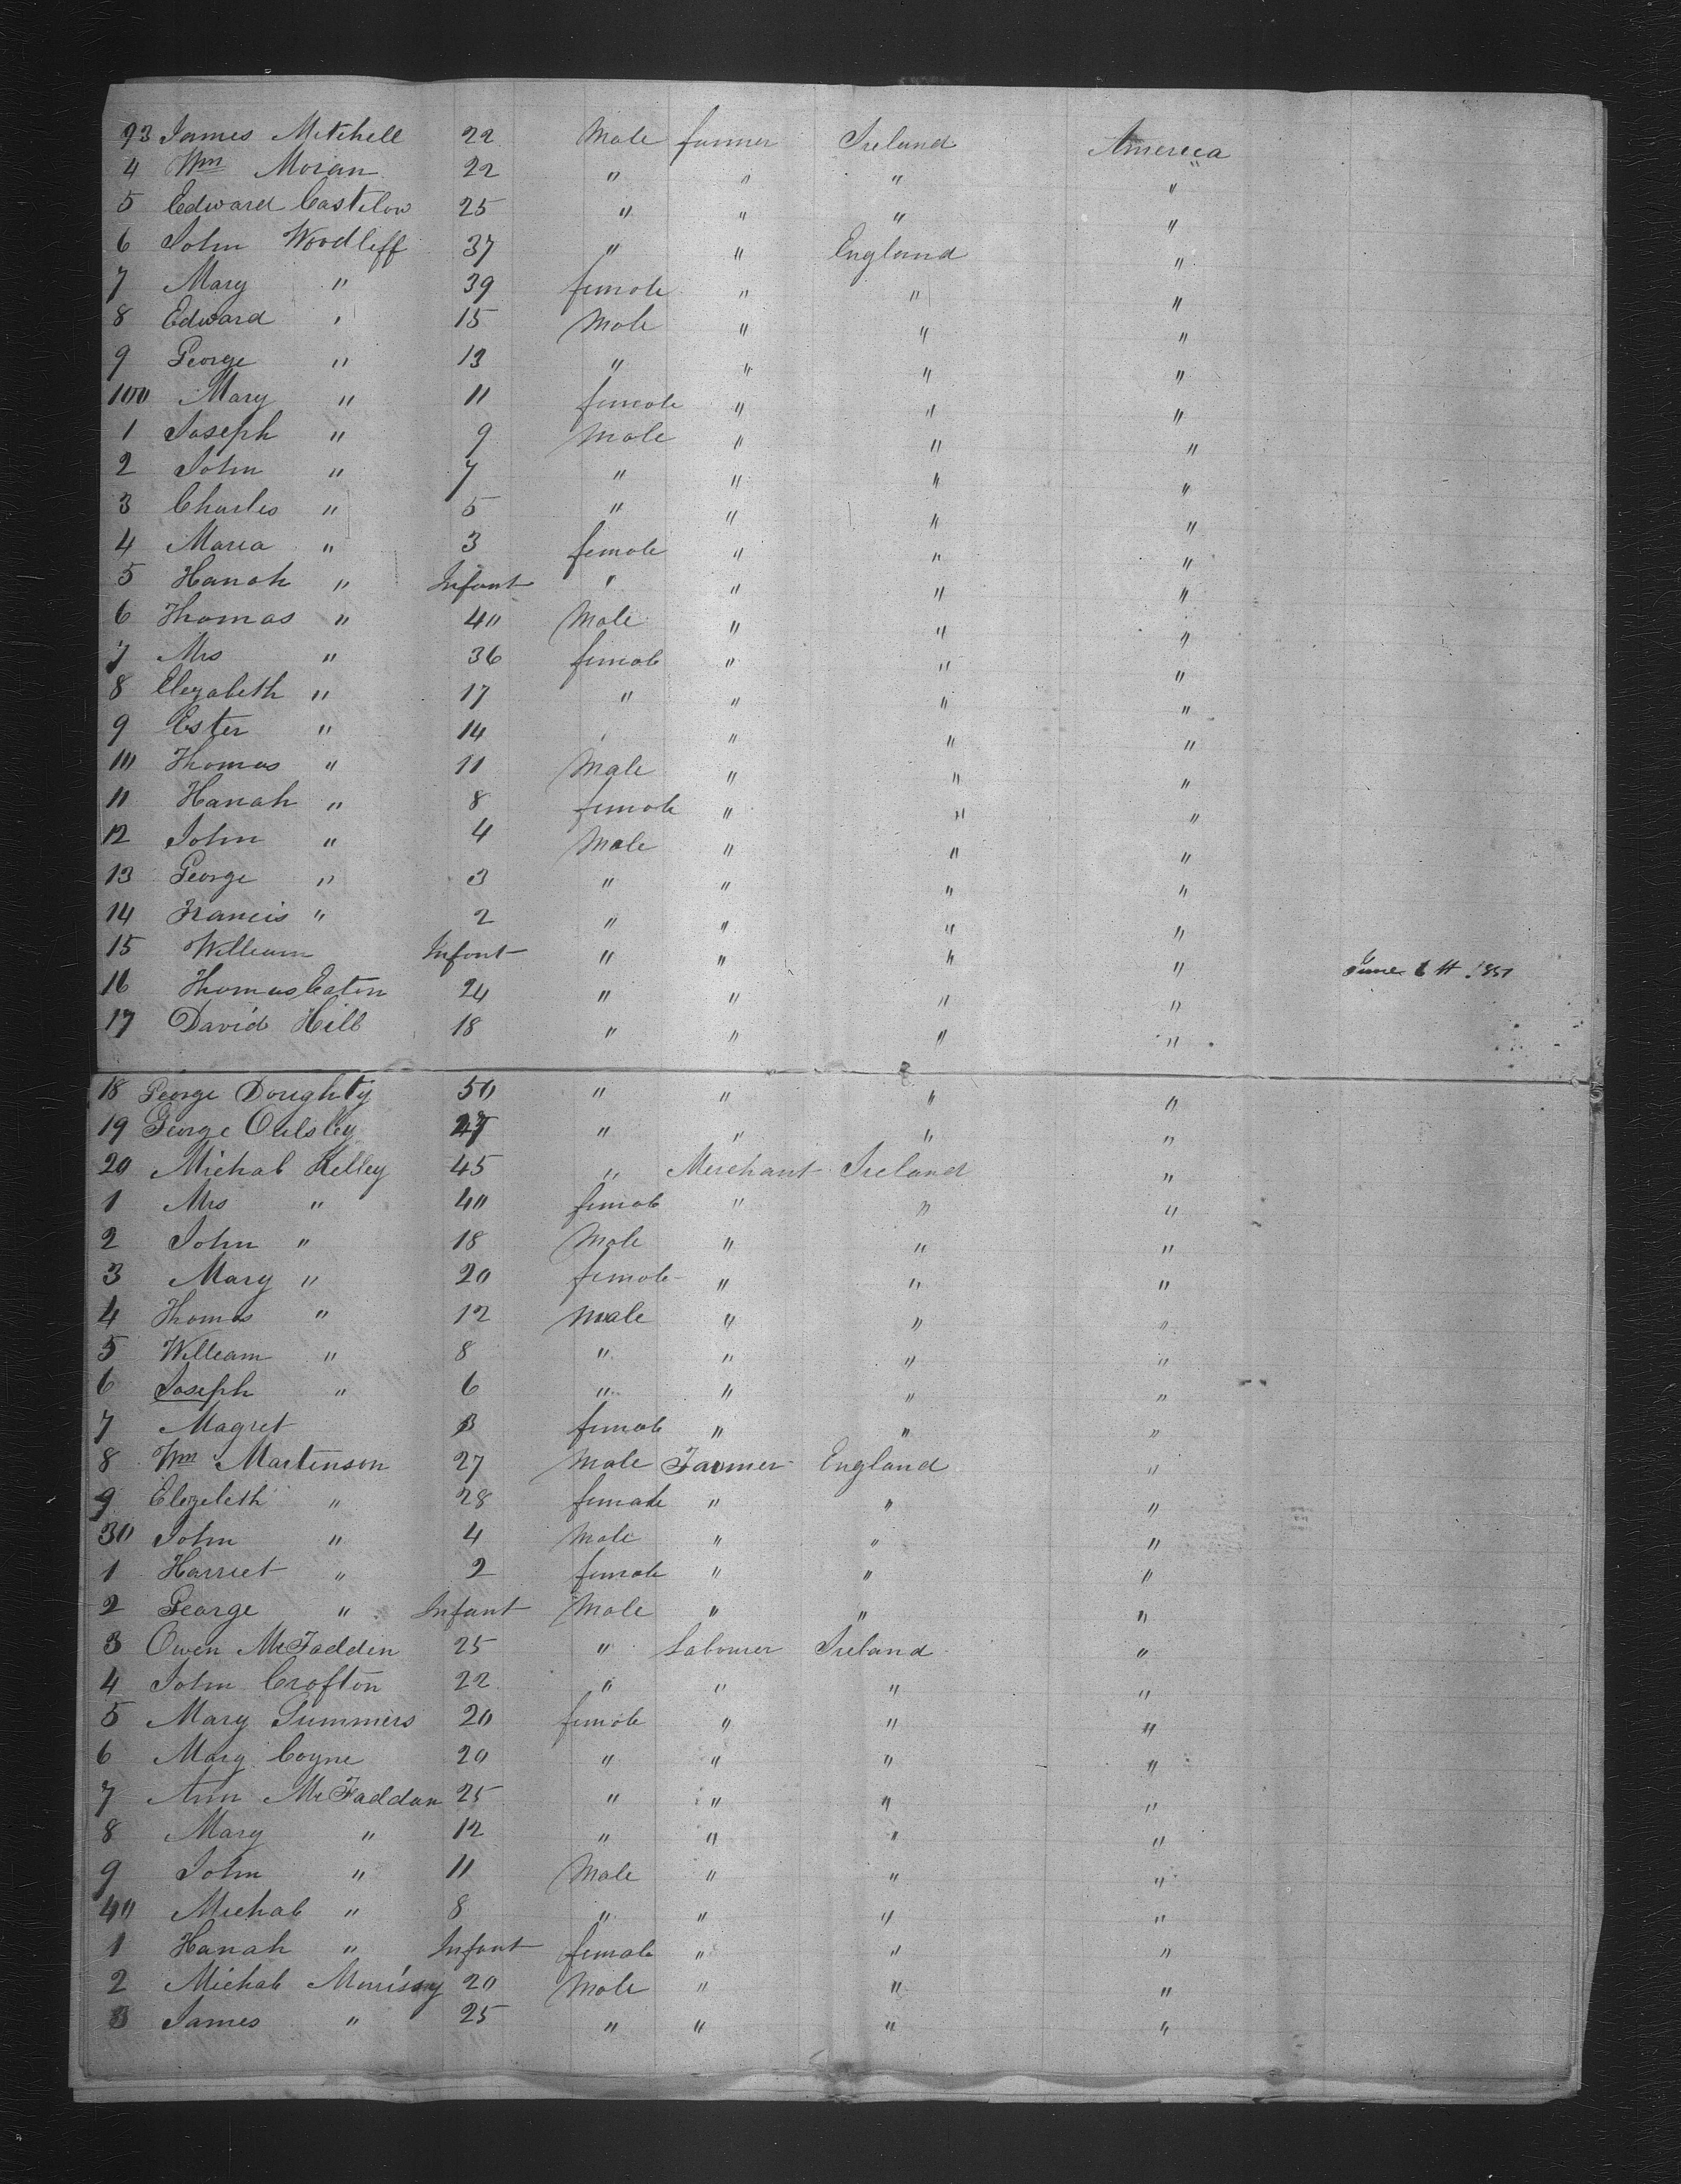 93 James Mitchell 22 Male farmer Ireland America
4 Wm Moran 22 " " " "
5 Edward Castelow 25 " " " "
6 John Woodliff 37 " " England "
7 Mary " 39 female " " "
8 Edward " 15 Male " " "
9 George " 13 " " " "
100 Mary " 11 female " " "
1 Joseph " 9 Male " " "
2 John " 7 " " " "
3 Charles " 5 " " " "
4 Maria " 3 female " " "
5 Hanah " Infant " " " "
6 Thomas " 40 Male " " "
7 Mrs " 36 female " " "
8 Elezabeth " 17 " " " "
9 Ester " 14 " " " "
10 Thomas " 11 Male " " "
11 Hanah " 8 female " " "
12 John " 4 Male " " "
13 George " 3 " " " "
14 Francis " 2 " " " "
15 William Infant " " " "
16 Thomas Eaton 24 " " " " June
17 David Hill 18 " " " "
18 George Doughty 50 " " " "
19 George 27 " " " "
20 Michal Kelley 45 " Merchant Ireland "
1 Mrs " 40 female " " "
2 John " 18 Male " " "
3 Mary " 20 female " " "
4 Thomas " 12 male " " "
5 William " 8 " " " "
6 Joseph " 6 " " " "
7 Magret 3 female " " "
8 Wm Martenson 27 Male Farmer England "
9 Elezebeth " 28 female " " "
30 John " 4 Male " " "
1 Harriet " 2 female " " "
2 George " Infant Male " " "
3 Owen McFadden 25 " Labourer Ireland "
4 John Crofton 22 " " " "
5 Mary Summers 20 female " " "
6 Mary Coyne 20 " " " "
7 Ann McFaddan 25 " " " "
8 Mary " 12 " " " "
9 John " 11 Male " " "
40 Michal " 8 " " " "
1 Hanah " Infant female " " "
2 Michal Morrisay 20 Male " " "
3 James " 25 " " " "